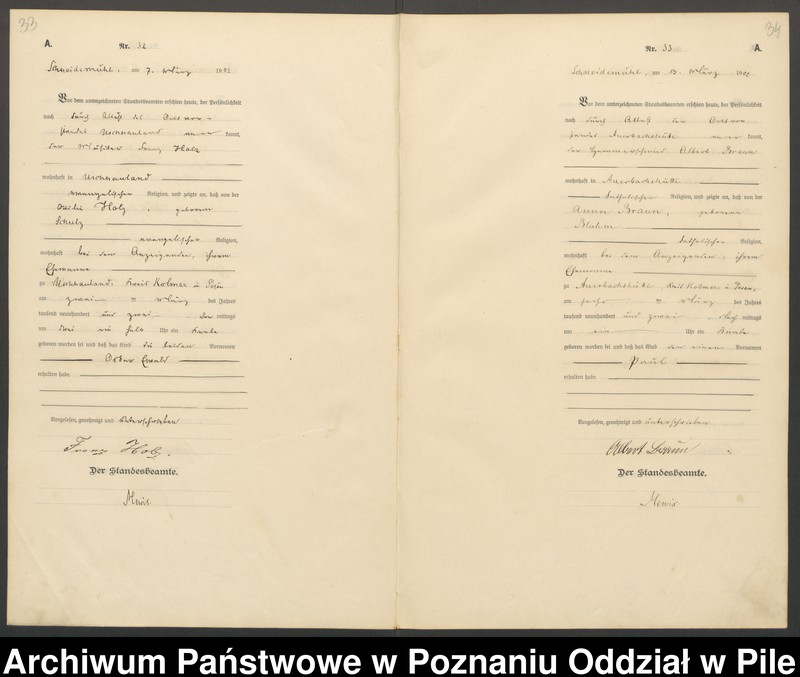 33
A.
Nr. 32
Schneidemühl, am 7. März 1902
Vor dem unterzeichneten Standesbeamten erschien heute, der Persönlichkeit
nach durch Attest des
kannt,
der Franz Holz
wohnhaft in Usch Neuland
evangelischer Religion, und zeigte an, daß von der
Holz, geborene
Schulz
evangelischer Religion,
wohnhaft bei dem Anzeigenden, ihrem
Ehemanne
zu Usch Neuland, Kreis Kolmar in Posen
am zwei März des Jahres
tausend neunhundert und zwei Vormittags
um drei ein halb Uhr ein Knabe
geboren worden sei und daß das Kind die beiden Vornamen
Oskar Ewald
erhalten habe.
Vorgelesen, genehmigt und unterschrieben
Franz Holz.
Der Standesbeamte.
Mewis
34
Nr. 33
A.
Schneidemühl, am 13. März 1902
Vor dem unterzeichneten Standesbeamten erschien heute, der Persönlichkeit
nach durch Attest des
Auerbachshütte kannt,
der Albert Braun
wohnhaft in Auerbachshütte
katholischer Religion, und zeigte an, daß von der
Anna Braun, geborene
Bluhm
katholischer Religion,
wohnhaft bei dem Anzeigenden, ihrem
Ehemanne
zu Auerbachshütte Kreis Kolmar in Posen,
am sechs März des Jahres
tausend neunhundert und zwei Nachmittags
um ein Uhr ein Knabe
geboren worden sei und daß das Kind den einen Vornamen
Paul
erhalten habe.
Vorgelesen, genehmigt und unterschrieben
Albert Braun
Der Standesbeamte.
Mewis
Archiwum Państwowe w Poznaniu Oddział w Pile